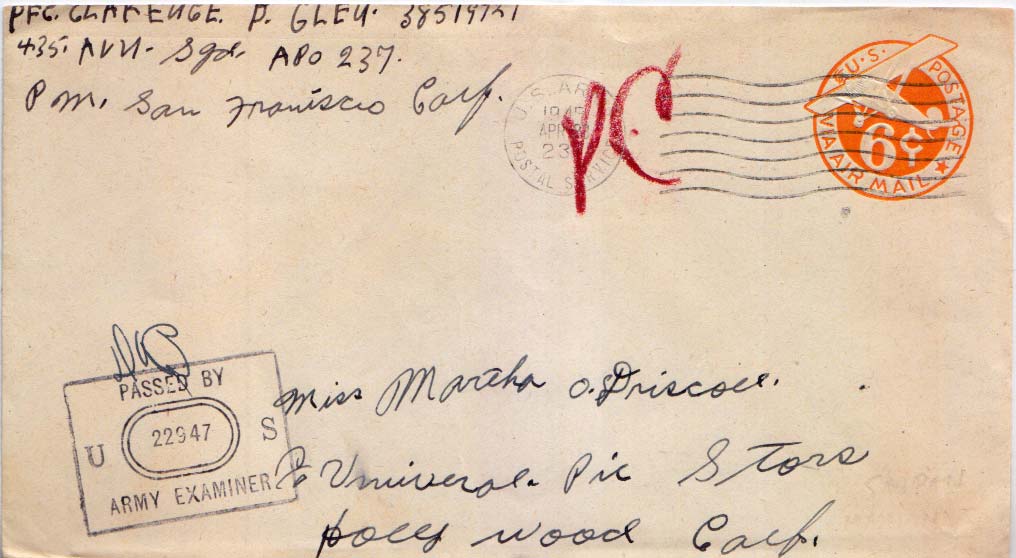 PFC. CLARENCE. D. GLEN. 38519721
435. AVN. Sqd. APO 237.
P M. San Francisco Calf.
PC
U.S. ARMY
1945
APR
23
POSTAL SERVICE
U.S. POSTAGE
6¢
VIA AIR MAIL
PASSED BY
U 22947 S
ARMY EXAMINER
Miss Martha O. Driscoll.
Univeral. Pic Stors
Holly wood Calf.